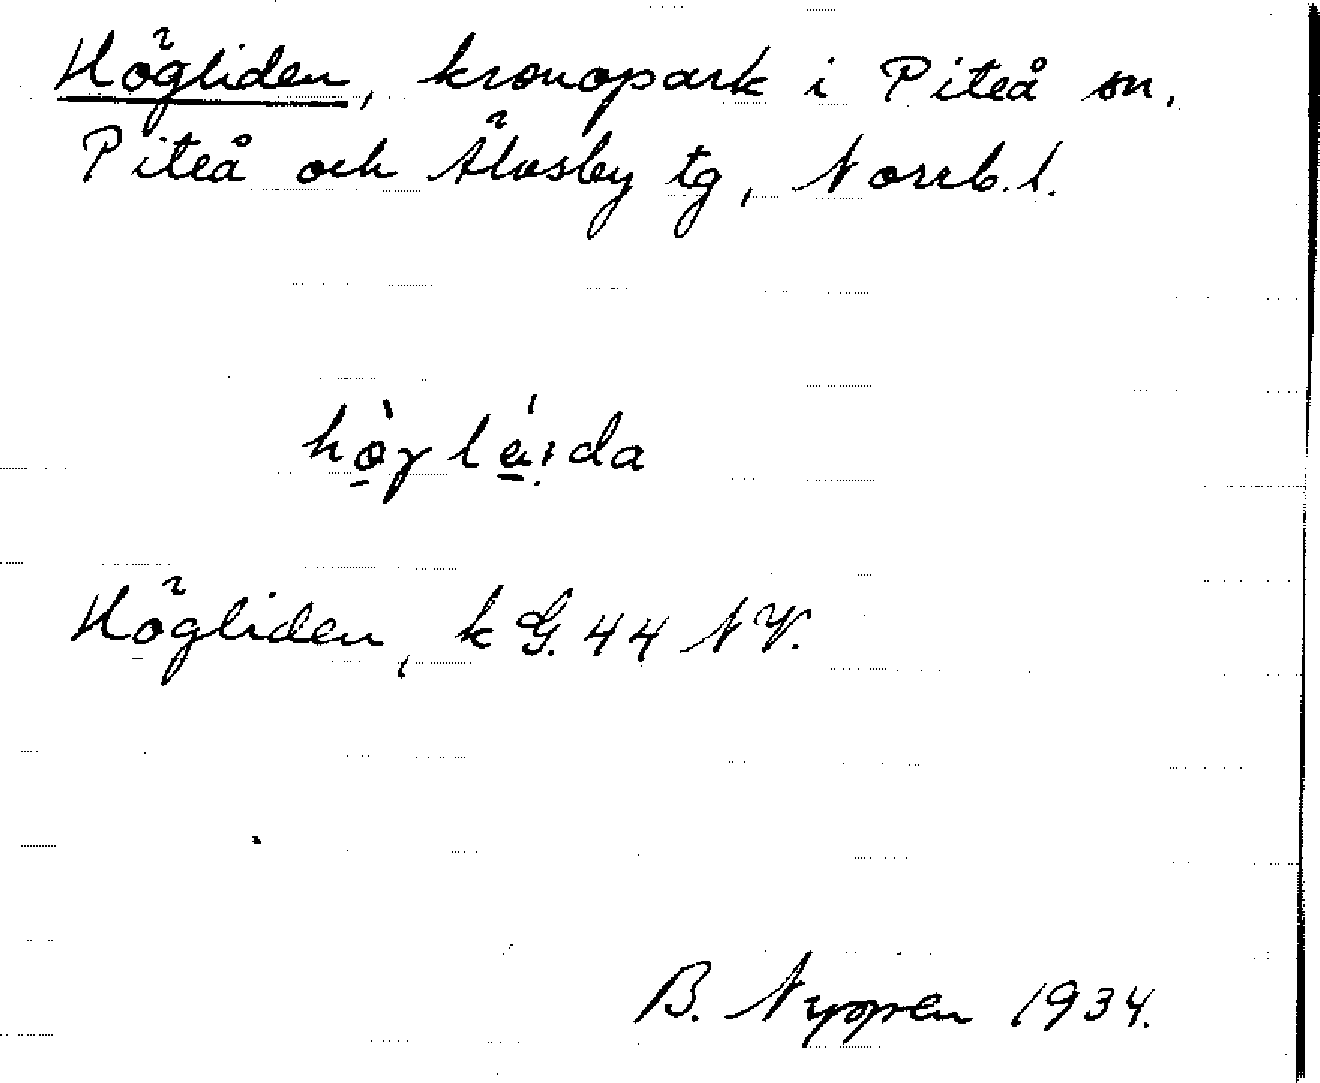 Högliden, kronopark i Piteå sn,
Piteå och Älvsby tg, Norrb. l.
Högliden, k G. 44 NV.
B. Nyppen 1934.